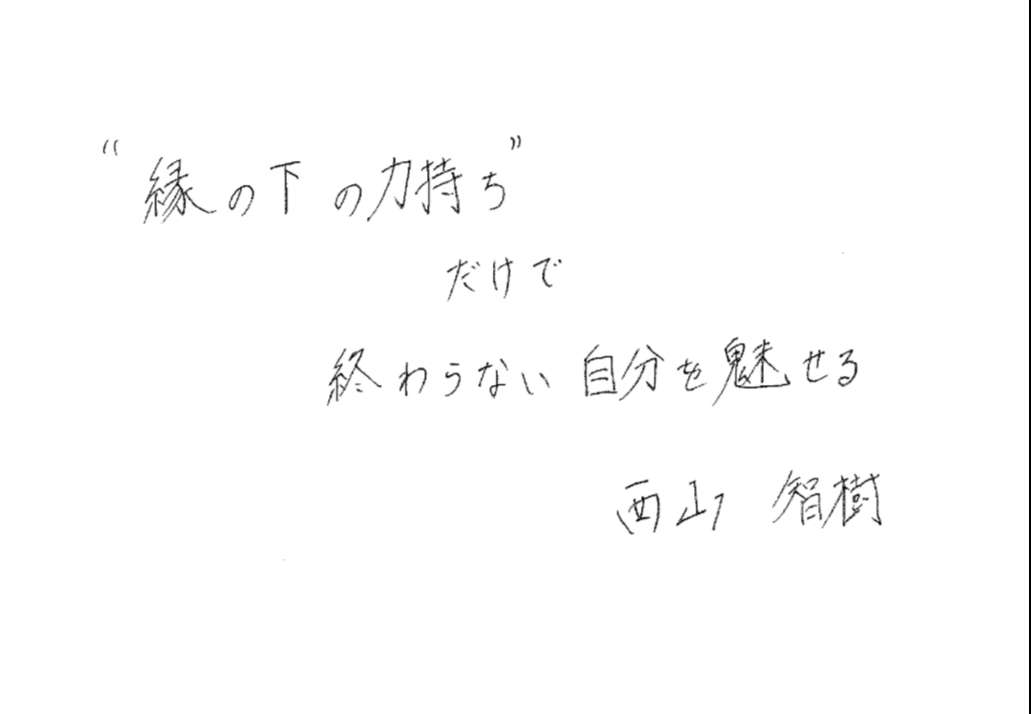 “縁の下の力持ち”
だけで
終わらない自分を魅せる
西山 智樹